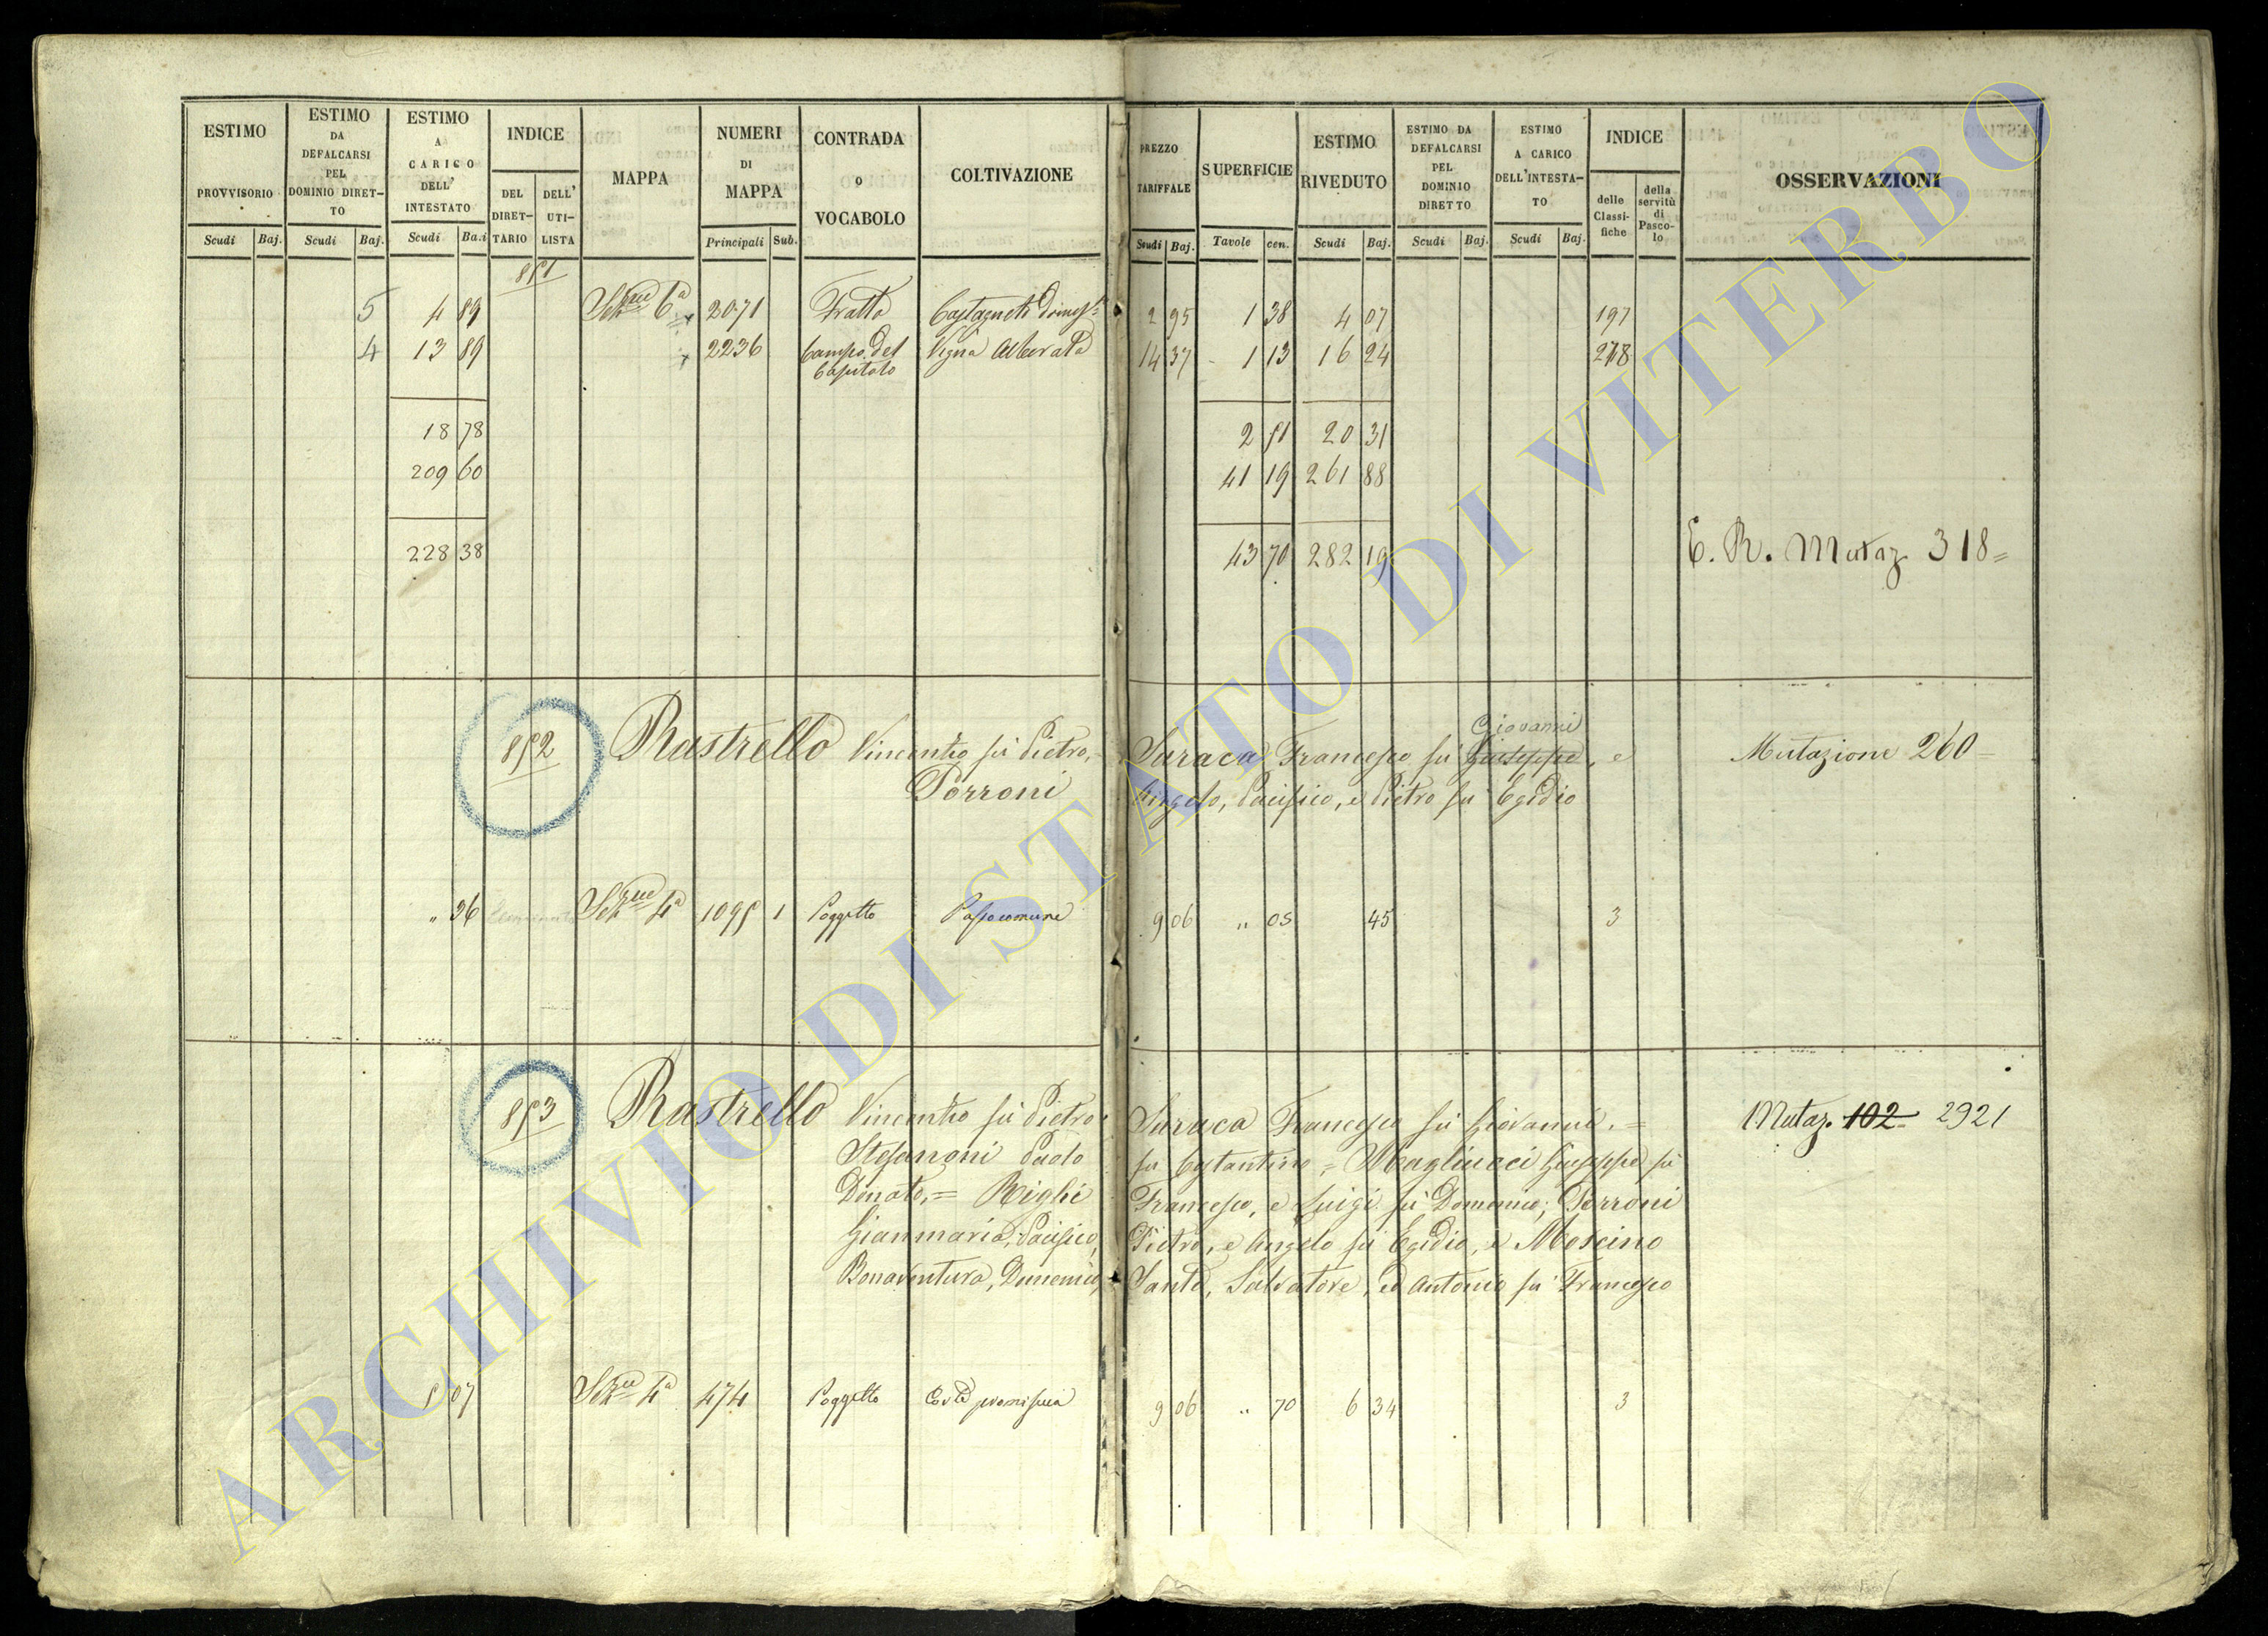 ESTIMO PROVVISORIO Scudi Baj.
ESTIMO DA DEFALCARSI PEL DOMINIO DIRETTO Scudi Baj.
ESTIMO A CARICO DELL' INTESTATO Scudi Ba.i
INDICE DEL DIRETTARIO DELL' UTILISTA
MAPPA
NUMERI DI MAPPA Principali Sub.
CONTRADA O VOCABOLO
COLTIVAZIONE
PREZZO TARIFFALE Scudi Baj.
SUPERFICIE Tavole cen.
ESTIMO RIVEDUTO Scudi Baj.
ESTIMO DA DEFALCARSI PEL DOMINIO DIRETTO Scudi Baj.
ESTIMO A CARICO DELL'INTESTATO Scudi Baj.
INDICE delle Classifiche della servitù di Pascolo
OSSERVAZIONI
851
5 4 89 Sez.ne 6a 2071 Fratta Castagneti domest. 2 95 1 38 4 07 197
4 13 89 2236 Campo del Capitolo Vigna Alberata 14 37 1 13 16 24 278
18 78 2 51 20 31
209 60 41 19 261 88
228 38 43 70 282 19 E. R. Mutaz. 318=
852 Rastrello Vincenzo fu Pietro, = Saraca Francesco fu Giuseppe Giovanni, e Mutazione 260=
Porroni Angelo, Pacifico, e Pietro fu Egidio
" 36 Sez.ne 4a 1095 1 Poggetto 9 06 " 05 45 3
853 Rastrello Vincenzo fu Pietro Saraca Francesco fu Giovanni, = Mutaz. 102 2921
Stefanoni Paolo fu Costantino = Magliucci Giuseppe fu
Donato, = Righi Francesco, e Luigi fu Domenico; Porroni
Gianmaria, Pacifico, Pietro, e Angelo fu Egidio, e Moscino
Bonaventura, Domenico, Santo, Salvatore, ed Antonio fu Francesco
5 07 Sez.ne 4a 474 Poggetto Corte promiscua 9 06 " 70 6 34 3
ARCHIVIO DI STATO DI VITERBO